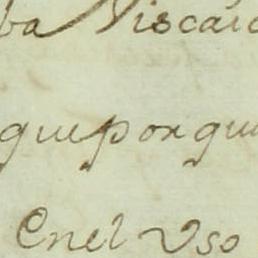 ba Viscaic
quiporqui
Enel Vso